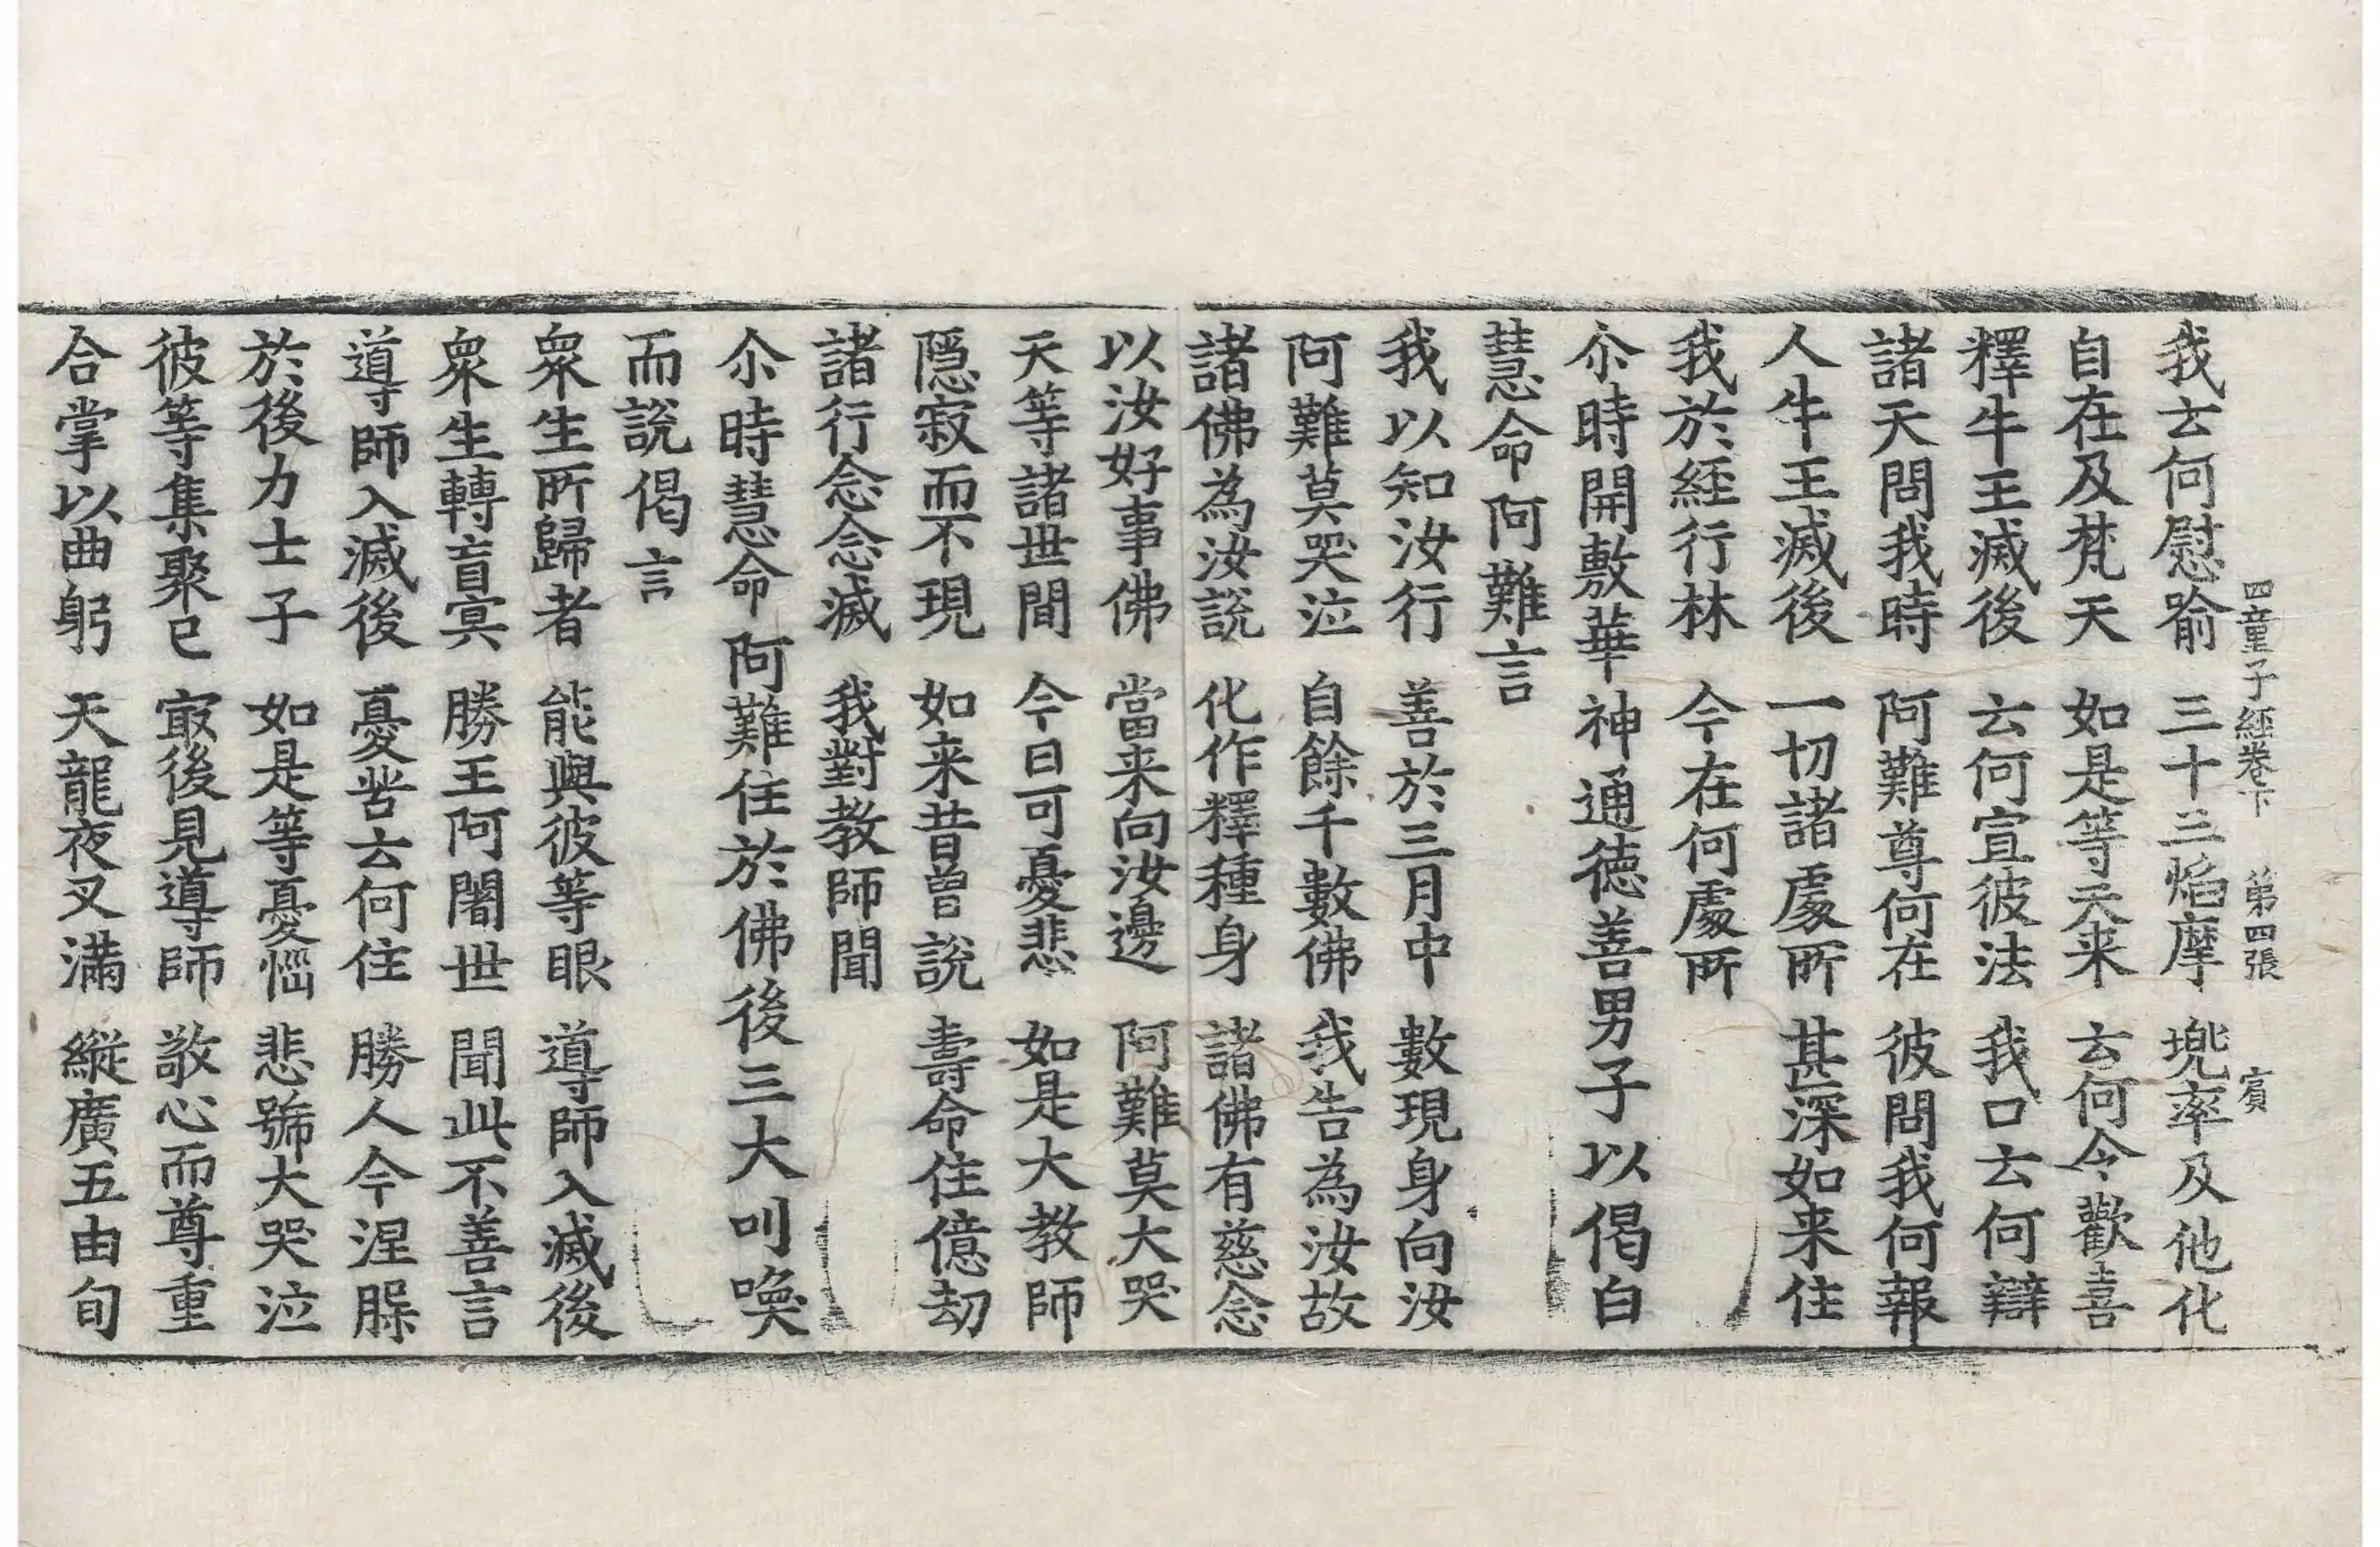 四童子經卷下 第四張 賓
我云何慰喻 三十三焰摩 兠率及他化
自在及梵天 如是等天来 云何令歡喜
釋牛王滅後 云何宣彼法 我口云何辯
諸天問我時 阿難尊何在 彼問我何報
人牛王滅後 一切諸處所 甚深如来住
我於經行林 今在何處所
尒時開敷華神通德善男子以偈白
慧命阿難言
我以知汝行 善於三月中 數現身向汝
阿難莫哭泣 自餘千數佛 我告為汝故
諸佛為汝說 化作釋種身 諸佛有慈念
以汝好事佛 當来向汝邊 阿難莫大哭
天等諸世間 今日可憂悲 如是大教師
隱寂而不現 如来昔曾說 壽命住億劫
諸行念念滅 我對教師聞
尒時慧命阿難住於佛後三大叫喚
而說偈言
衆生所歸者 能與彼等眼 導師入滅後
衆生轉盲冥 勝王阿闍世 聞此不善言
導師入滅後 憂苦云何住 勝人今涅槃
於後力士子 如是等憂惱 悲號大哭泣
彼等集聚已 㝡後見導師 敬心而尊重
合掌以曲躬 天龍夜叉滿 縱廣五由旬